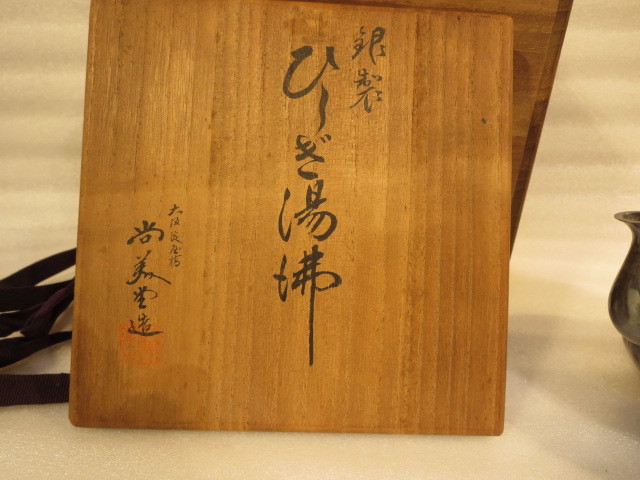 銀製
ひしぎ湯沸
大阪淀屋橋
尚美堂造